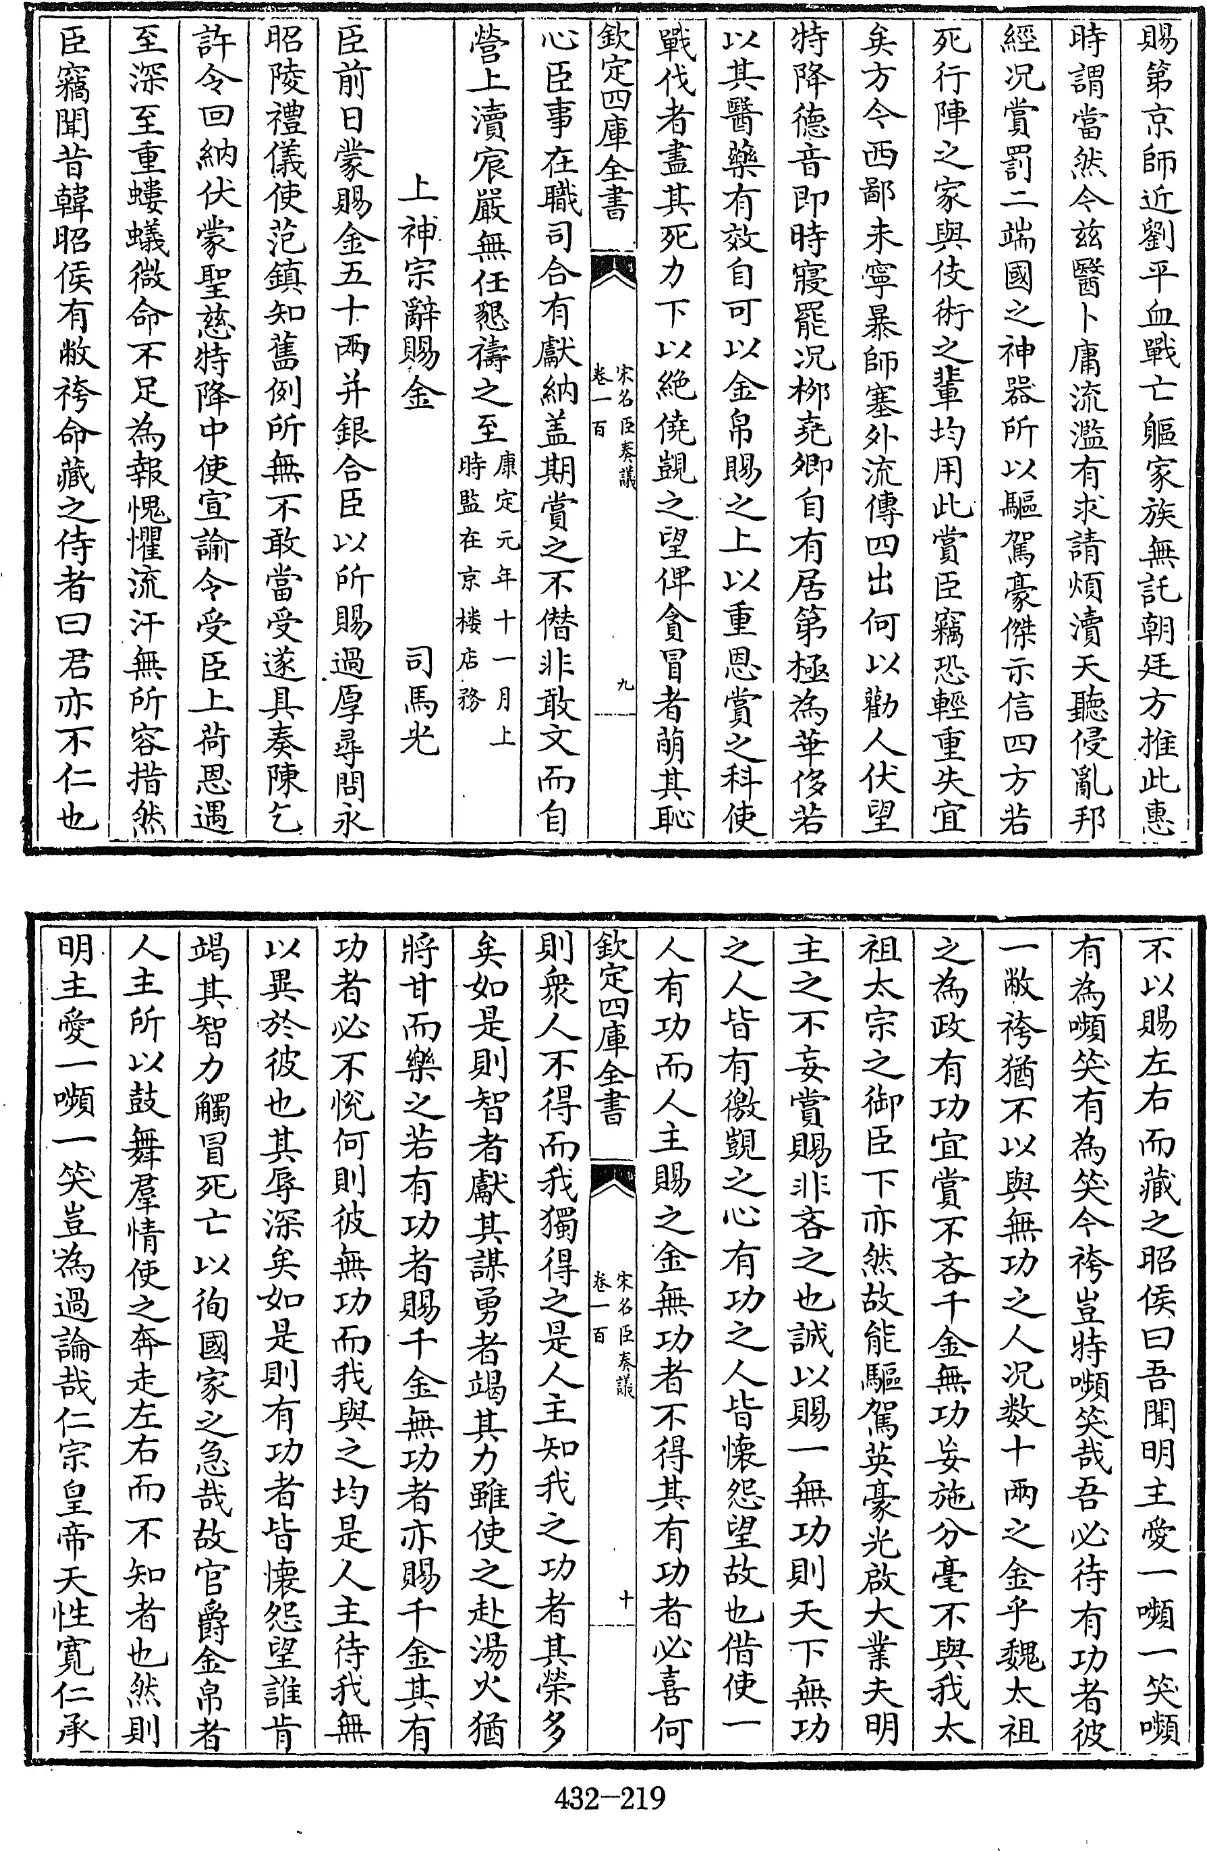 賜第京師近劉平血戰亡軀家族無託朝廷方推此惠
時謂當然今兹醫卜庸流濫有求請煩瀆天聽侵亂邦
經况賞罰二端國之神器所以驅駕豪傑示信四方若
死行陣之家與伎術之輩均用此賞臣竊恐輕重失宜
矣方今西鄙未寧暴師塞外流傳四出何以勸人伏望
特降德音即時寢罷况栁堯卿自有居第極為華侈若
以其醫藥有效自可以金帛賜之上以重恩賞之科使
戰伐者盡其死力下以絶僥覬之望俾貪冒者萌其恥
欽定四庫全書
宋名臣奏議
卷一百
九
心臣事在職司合有獻納盖期賞之不僭非敢文而自
營上瀆宸嚴無任懇禱之至康定元年十一月上
時監在京楼店務
上神宗辭賜金
司馬光
臣前日蒙賜金五十兩并銀合臣以所賜過厚尋問永
昭陵禮儀使范鎮知舊例所無不敢當受遂具奏陳乞
許令回納伏蒙聖慈特降中使宣諭令受臣上荷恩遇
至深至重螻蟻微命不足為報愧懼流汗無所容措然
臣竊聞昔韓昭侯有敝袴命藏之侍者曰君亦不仁也
不以賜左右而藏之昭侯曰吾聞明主愛一嚬一笑嚬
有為嚬笑有為笑今袴豈特嚬笑哉吾必待有功者彼
一敝袴猶不以與無功之人况数十兩之金乎魏太祖
之為政有功宜賞不吝千金無功妄施分毫不與我太
祖太宗之御臣下亦然故能驅駕英豪光啟大業夫明
主之不妄賞賜非吝之也誠以賜一無功則天下無功
之人皆有徼覬之心有功之人皆懷怨望故也借使一
人有功而人主賜之金無功者不得其有功者必喜何
欽定四庫全書
宋名臣奏議
卷一百
十
則衆人不得而我獨得之是人主知我之功者其榮多
矣如是則智者獻其謀勇者竭其力雖使之赴湯火猶
將甘而樂之若有功者賜千金無功者亦賜千金其有
功者必不悅何則彼無功而我與之均是人主待我無
以異於彼也其辱深矣如是則有功者皆懷怨望誰肯
竭其智力觸冒死亡以徇國家之急哉故官爵金帛者
人主所以鼓舞羣情使之奔走左右而不知者也然則
明主愛一嚬一笑豈為過論哉仁宗皇帝天性寛仁承
432-219